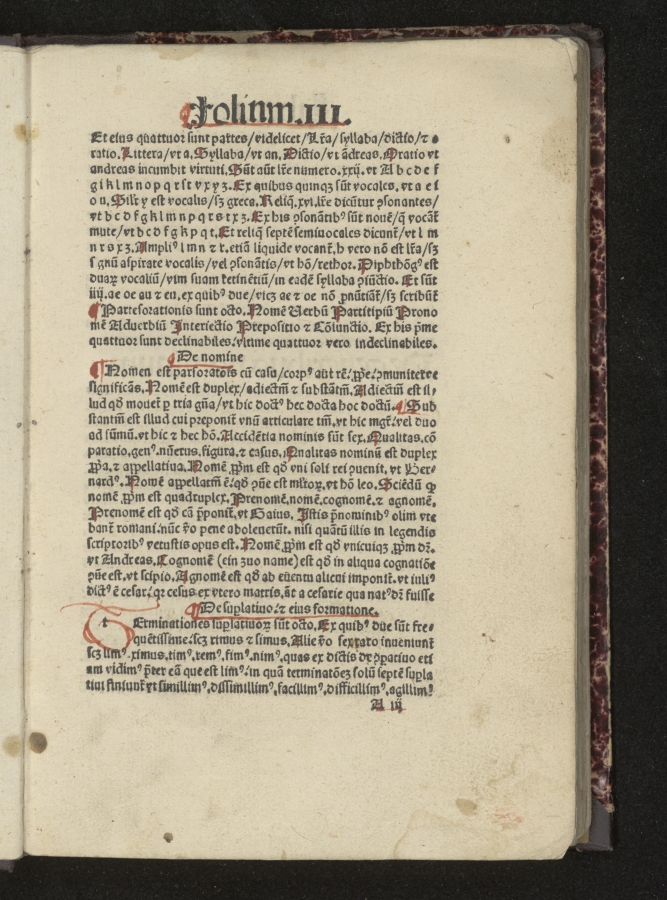 Folium.III.
Et eius quattuor sunt partes/videlicet/Lr̃a/syllaba/dictio/⁊ o
ratio. Littera/vt a. Syllaba/vt an. Dictio/vt ãdreas. Oratio vt
andreas incumbit virtuti. Sũt aũt lr̃e numero.xxij. vt A b c d e f
g i k l m n o p q r s t v x y z. Ex quibus quinqꝫ sũt vocales. vt a e i
o u. Silr̃ y est vocalis/sꝫ greca. Reliq̃.xvi.lr̃e dicũtur ꝯsonantes/
vt b c d f g k l m n p q r s t x z. Ex his ꝯsonãtibꝰ sũt nouẽ/q̃ vocãt̃
mute/vt b c d f g k p q t. Et reliq̃ septẽ semiuocales dicunt̃/vt l m
n r s x z. Ampliꝰ l m n ⁊ r. etiã liquide vocant̃. h vero nõ est lr̃a/sꝫ
signũ aspirate vocalis/vel ꝯsonãtis/vt hõ/rethor. Diphthõgꝰ est
duaꝝ vocaliũ/vim suam ꝛetinẽtiũ/in eadẽ syllaba ꝯiũctio. Et sũt
iiij. ae oe au ⁊ eu. ex quibꝰ due/vicꝫ ae ⁊ oe nõ ꝓnũtiãt̃/sꝫ scribũt̃
Partesorationis sunt octo. Nomẽ Uerbũ Partitipiũ Prono
mẽ Aduerbiũ Interiectio Prepositio ⁊ Cõiunctio. Ex his p̃me
quattuor sunt declinabiles. vltime quattuor vero indeclinabiles.
De nomine
Nomen est parsoratõis cũ casu/corpꝰ aũt rẽ. ꝓpͤ. ꝯmuniterͤe
significãs. Nomẽ est duplex/adiectiũ ⁊ substãtiũ. Adiectiũ est il/
lud qð mouet̃ ꝑ tria gñ̃a/vt hic doctꝰ hec docta hoc doctũ. Sub
stantiũ est illud cui preponit̃ vnũ articulare tm̃. vt hic mgr̃. vel duo
ad sũmũ. vt hic ⁊ hec hõ. Accidẽtia nominis sũt sex. Qualitas. cõ
paratio. genꝰ. nũerus. figura. ⁊ casus. Qualitas nominũ est duplex
ꝓpͣa. ⁊ appellatiua. Nomẽ ꝓpm̃ est qð vni soli rei ꝯuenit. vt Ber
nardꝰ. Nomẽ appellatiũ ẽ. qð ꝯuẽe est ml̃toꝝ. vt hõ leo. Sciẽdũ ꝙ
nomẽ ꝓpm̃ est quadruplex. Prenomẽ. nomẽ. cognomẽ. ⁊ agnomẽ.
Prenomẽ est qð cã p̃ponit̃. vt Gaius. Istis p̃nominibꝰ olim vte
bant̃ romani. nũc ṽo pene aboleuerũt. nisi quãtũ illis in legendis
scriptoribꝰ vetustis opus est. Nomẽ ꝓpm̃ est qð vnicuiqꝫ ꝓpm̃ dr̃.
vt Andreas. Cognomẽ (ein zuo name) est qð in aliqua cognatiõe
ꝯuẽe est. vt scipio. Agnomẽ est qð ab euẽtu alicui imponit̃. vt iuliꝰ
dictꝰ ẽ cesar. qꝛ cesus ex vtero matris. aut a cesarie qua natꝰ dr̃ fuisse
De suplatiuo. ⁊ eius formatione.
Terminationes suplatiuoꝝ sũt octo. Ex quibꝰ due sũt fre=
quẽtissime. scꝫ rimus ⁊ simus. Alie ṽo sex raro inueniunt̃
scꝫ limꝰ. ximus. timꝰ. remꝰ. fimꝰ. nimꝰ. quas ex dictis de ꝯꝑatiuo eti
am vidimꝰ. p̃ter eã que est limꝰ. in quã terminatõeꝫ solũ septẽ supla
tiui finiunt̃ vt simillimꝰ. dissimillimꝰ. facillimꝰ. difficillimꝰ. agillimꝰ
A iij